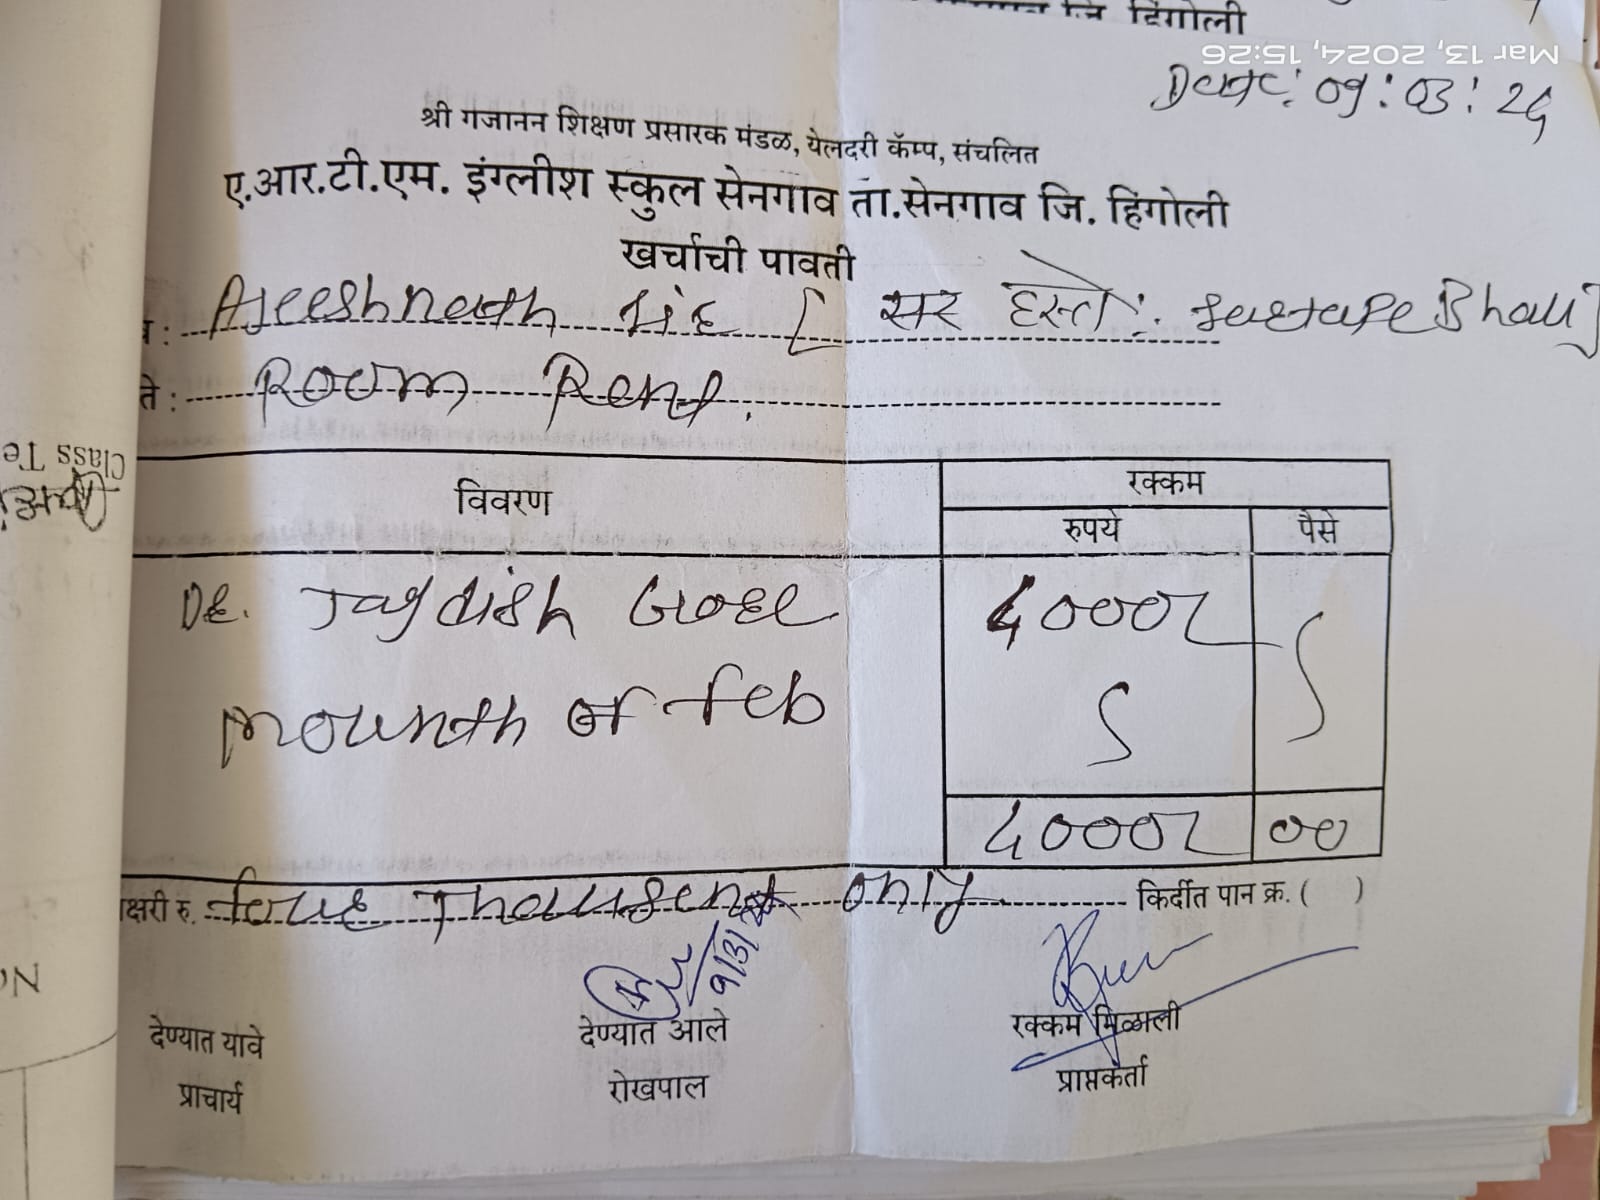 जि हिंगोली
Mar 13, 2024, 15:26
Date: 09:03:24
श्री गजानन शिक्षण प्रसारक मंडळ, येलदरी कॅम्प, संचलित
ए.आर.टी.एम. इंग्लीश स्कुल सेनगाव ता.सेनगाव जि. हिंगोली
खर्चाची पावती
Ajeeshnath सर हस्ते:
ते : Room Rent.
विवरण रक्कम
रुपये पैसे
Class Te
De. Jagdish Gore 4000
mounth of feb
4000 00
क्षरी रु. four Thousent only किर्दीत पान क्र. ( )
9/3/24
देण्यात यावे देण्यात आले रक्कम मिळाली
प्राचार्य रोखपाल प्राप्तकर्ता